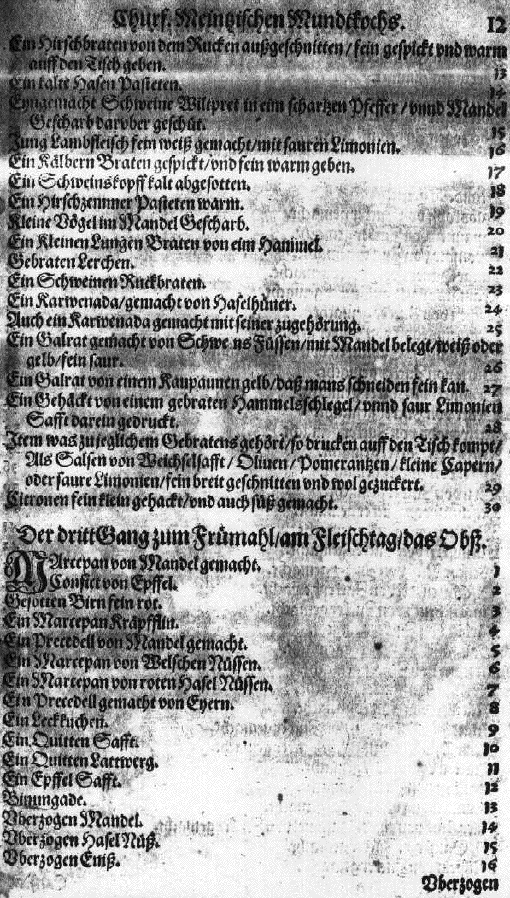 Churf. Meintzischen Mundtkochs. 12
Ein Hirschbraten von dem Rucken außgeschnitten / fein gespickt vnd warm
auff den Tisch geben. 13
Ein kalte Hasen Pasteten. 14
Eyngemacht Schweine Wiltpret in eim schartzen Pfeffer / vnnd Mandel
Gescharb darvber geschüt. 15
Jung Lambsfleisch fein weiß gemacht / mit sauren Limonien. 16
Ein Kälbern Braten gespickt / vnd fein warm geben. 17
Ein Schweinskopff kalt abgesotten. 18
Ein Hirschzemmer Pasteten warm. 19
Kleine Vögel im Mandel Gescharb. 20
Ein Kleinen Lungen Braten von eim Hammel. 21
Gebraten Lerchen. 22
Ein Schweinen Ruckbraten. 23
Ein Karwenada / gemacht von Haselhüner. 24
Auch ein Karwenada gemacht mit seiner zugehörung. 25
Ein Galrat gemacht von Schweinen Füssen / mit Mandel belegt / weiß oder
gelb / fein saur. 26
Ein Galrat von einem Kaupaunen gelb / daß mans schneiden fein kan. 27
Ein Gehäckt von einem gebraten Hammelsschlegel / vnnd saur Limonien
Safft darein gedruckt. 28
Item was zu jeglichem Gebratens gehört / so drucken auff den Tisch kompt /
Als Salsen von Weichselsafft / Oliuen / Pomerantzen / kleine Capern /
oder saure Limonien / fein breit geschnitten vnd wol gezuckert. 29
Citronen fein klein gehackt / vnd auch süß gemacht. 30
Der dritt Gang zum Frümahl / am Fleischtag / das Obst.
MArcepan von Mandel gemacht. 1
Confict von Epffel. 2
Gesotten Birn fein rot. 3
Ein Marcepan Kräpfflin. 4
Ein Precedell von Mandel gemacht. 5
Ein Marcepan von Welschen Nüssen. 6
Ein Marcepan von roten Hasel Nüssen. 7
Ein Precedell gemacht von Eyern. 8
Ein Leckkuchen. 9
Ein Quitten Safft. 10
Ein Quitten Lattwerg. 11
Ein Epffel Safft. 12
Binungade. 13
Vberzogen Mandel. 14
Vberzogen Hasel Nüß. 15
Vberzogen Eniß. 16
Vberzogen